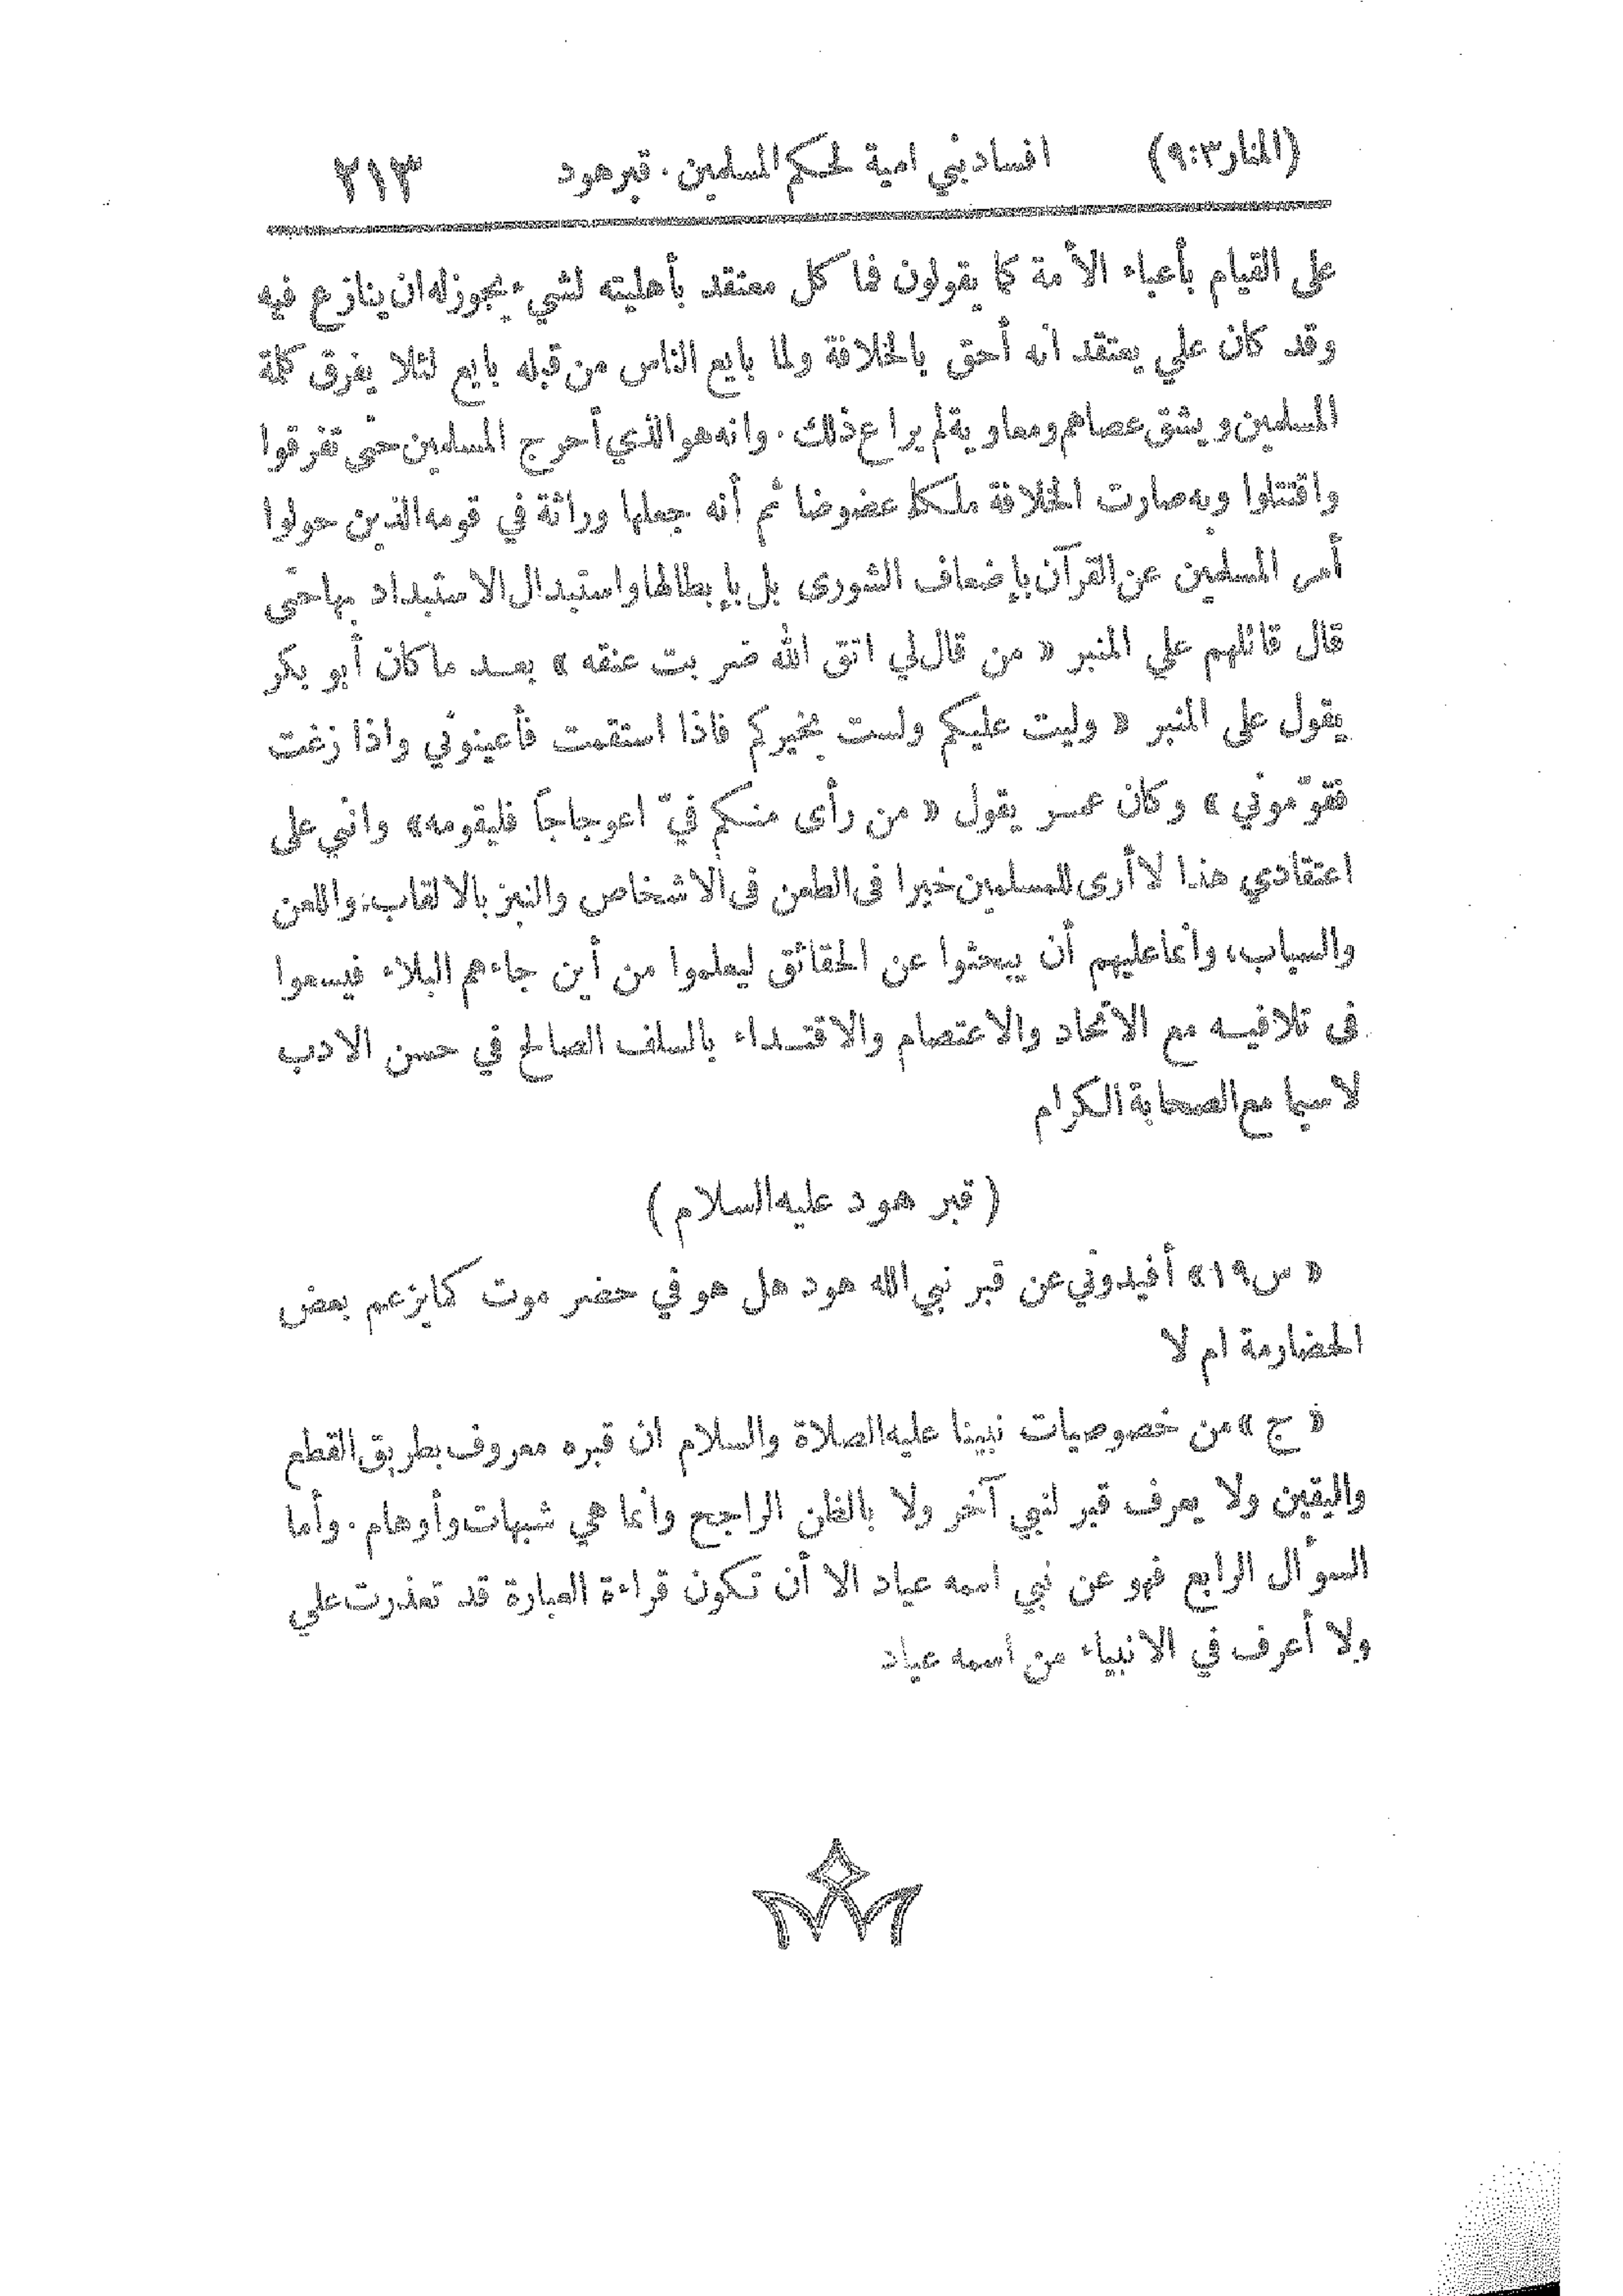 (المنار ٣:٩) افساد بني امية لحكم المسلمين . قبر هود ٢١٣
على القيام بأعباء الأمة كما يقولون فما كل معتقد بأهليته لشيء يجوز له ان ينازع فيه
وقد كان علي يعتقد انه أحق بالخلافة ولما بايع الناس من قبله بايع لئلا يفرق كلمة
المسلمين ويشق عصاهم ومعاوية لم يراع ذلك . وانه هو الذي أحرج المسلمين حتى تفرقوا
واقتتلوا وبه صارت الخلافة ملكا عضوضا ثم أنه جعلها وراثة في قومه الذين حولوا
أمر المسلمين عن القرآن بإضعاف الشورى بل بإبطالها واستبدال الاستبداد بها حتى
قال قائلهم على المنبر « من قال لي اتق الله ضربت عنقه » بعد ما كان أبو بكر
يقول على المنبر « وليت عليكم ولست بخيركم فاذا استقمت فأعينوني واذا زغت
فقوّموني » وكان عمر يقول « من رأى منكم فيّ اعوجاجًا فليقومه » واني على
اعتقادي هذا لا أرى للمسلمين خيرا فى الطعن فى الاشخاص والنبز بالالقاب، واللعن
والسباب، وانما عليهم أن يبحثوا عن الحقائق ليعلموا من أين جاءهم البلاء فيسعوا
فى تلافيه مع الاتحاد والاعتصام والاقتداء بالسلف الصالح في حسن الادب
لا سيما مع الصحابة الكرام
( قبر هود عليه السلام )
« س١٩ » أفيدوني عن قبر نبي الله هود هل هو في حضر موت كما يزعم بعض
الحضارمة ام لا
« ج » من خصوصيات نبينا عليه الصلاة والسلام ان قبره معروف بطريق القطع
واليقين ولا يعرف قبر لنبي آخر ولا بالظن الراجح وانما هي شبهات وأوهام . وأما
السؤال الرابع فهو عن نبي اسمه عياد الا أن تكون قراءة العبارة قد تعذرت علي
ولا أعرف في الانبياء من اسمه عياد